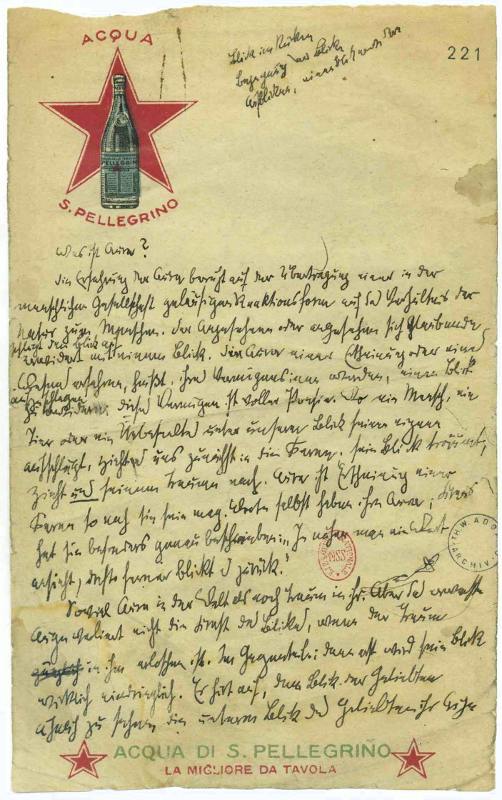 221
ACQUA
S. PELLEGRINO
Blick im Rücken
Begegnung der Blicke
Aufblicken,
Was ist Aura?
Die Erfahrung der Aura beruht auf der Übertragung einer in der
menschlichen Gesellschaft geläufigen Reaktionsform auf das Verhältnis der
Natur zum Menschen. Der Angesehene oder angesehen sich Glaubende
schlägt den Blick auf
erwidert mit einem Blick. Die Aura einer Erscheinung oder eines
Wesens erfahren, heißt, ihres Vermögens inne werden, einen Blick
aufzuschlagen
zu erwidern. Dieses Vermögen ist voller Poesie. Wo ein Mensch, ein
Tier oder ein Unbeseeltes unter unserm Blick seinen eignen
aufschlägt, zieht es uns zunächst in die Ferne. sein Blick träumt,
zieht uns seinem Traume nach. Aura ist Erscheinung einer
Ferne so nah sie sein mag. Worte selbst haben ihre Aura; Kraus
hat sie besonders genau beschrieben: „Je näher man ein Wort
ansieht, desto ferner blickt es zurück.“
Soviel Aura in der Welt als noch Traum in ihr. Aber das erwachte
Auge verlernt nicht die Kunst des Blicks, wenn der Traum
in ihm erloschen ist. Im Gegenteil: dann erst wird sein Blick
wirklich eindringlich. Er hört auf, dem Blick der Geliebten
ähnlich zu sehen, die unterm Blick des Geliebten ihr Auge
ACQUA DI S. PELLEGRINO
LA MIGLIORE DA TAVOLA